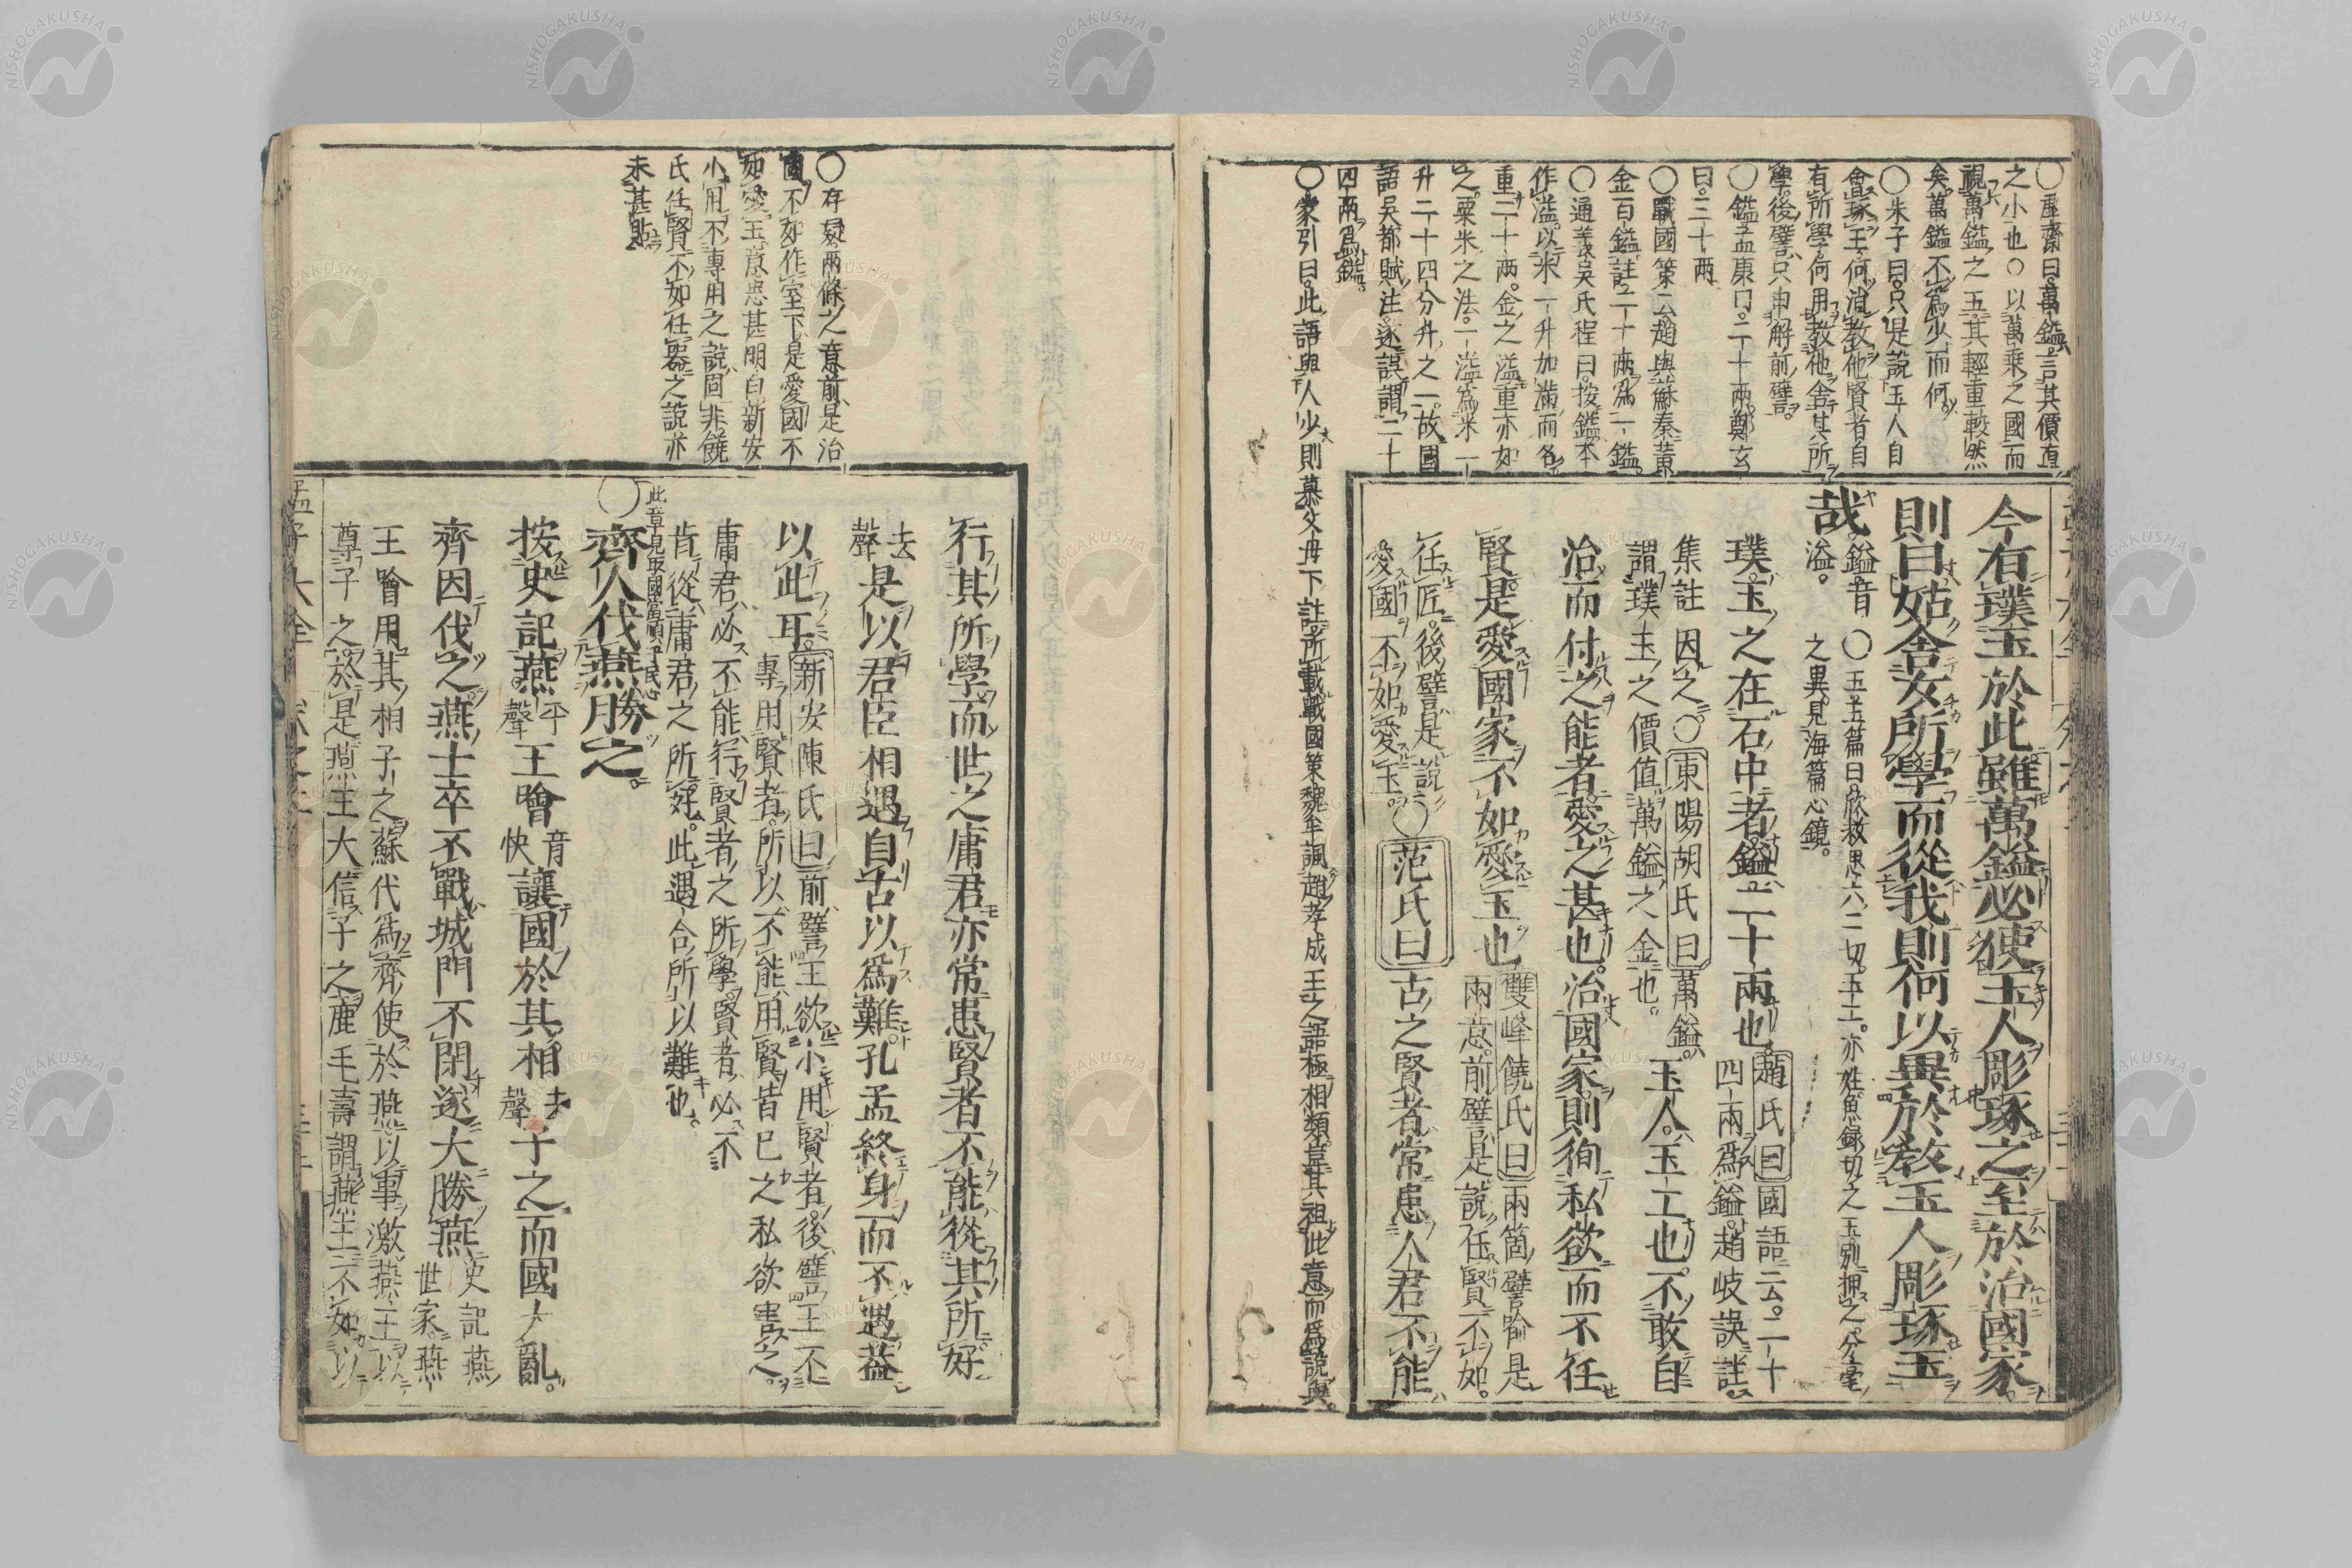 ○虛齋曰。萬鎰。言其價直
之小也○以萬乗之國而
視萬鎰之玉其輕重較然
矣。萬鎰不爲少而何。
○朱子曰。只是說玉人自
會琢玉何消教他賢者自
有所學何用教他舍其所
學。後譬只申解前譬。
○鎰孟康曰。二十兩。鄭玄
曰。三十兩
○戰國策云趙與蘇秦黄
金百鎰註。二十兩爲一鎰。
○通義吳氏程曰。按鎰本
作溢。以米一升加滿而各
重二十两。金之溢重亦如
之。粟米之法。一溢爲米一
升二十四分升之一。故國
語吳都賦注。遂誤謂二十
四兩爲鎰。
○蒙引曰。此語與人少則慕父母下註所載戰國策魏牟諷趙孝成王之語極相類。豈其祖此意而爲說與。
今有璞玉於此雖萬鎰必使玉人彫琢之至於治國家
則曰姑舍女所學而從我則何以異於教玉人彫琢玉
哉。鎰音
溢。
○玉玉篇曰。欣救思六二切。玉工。亦姓。魚錄切之玉別押之。分毫
之異。見海篇心鏡。
璞玉之在石中者。鎰二十兩也。趙氏曰國語云。二十
四兩爲鎰。趙岐誤註。
集註因之。○東陽胡氏曰萬鎰。
謂璞玉之價值萬鎰之金也。
玉人。玉工也。不敢自
治而付之能者。愛之甚也。治國家。則徇私欲而不任
賢是愛國家不如愛玉也雙峰饒氏曰兩箇譬喻是
兩意。前譬是說任賢不如。
任匠。後譬是說
愛國。不如愛玉。○范氏曰古之賢者。常患人君不能
○存疑兩條之意前是治
國不如作室下是愛國不
如愛玉意思甚明白新安
小用不專用之說固非饒
氏任賢不如任器之說亦
未甚點
行其所學而世之庸君亦常患賢者不能從其所好
去
聲是以君臣相遇自古以爲難。孔孟終身而不遇蓋
以此耳。新安陳氏曰前譬王欲小用賢者。後譬王不
專用賢者。所以不能用賢皆已之私欲害之。
庸君必不能行賢者之所學。賢者必不
肯從庸君之所好。此遇合所以難也。
此章見取國當順乎民心
○齊人伐燕勝之。
按史記燕。平
聲王噲音
快讓國於其相去
聲子之而國大亂。
齊因伐之。燕士卒不戰城門不閉遂大勝燕史記燕
世家。燕
王噲用其相子之。蘇代爲齊使於燕以事激燕王以
尊子之於是燕王大信子之鹿毛壽謂燕王不如以
孟子大全